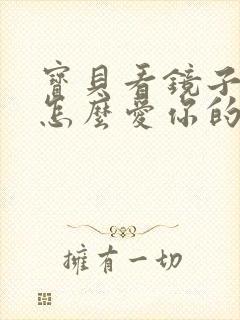 寶貝看鏡子
怎麼愛你的
擁有一切